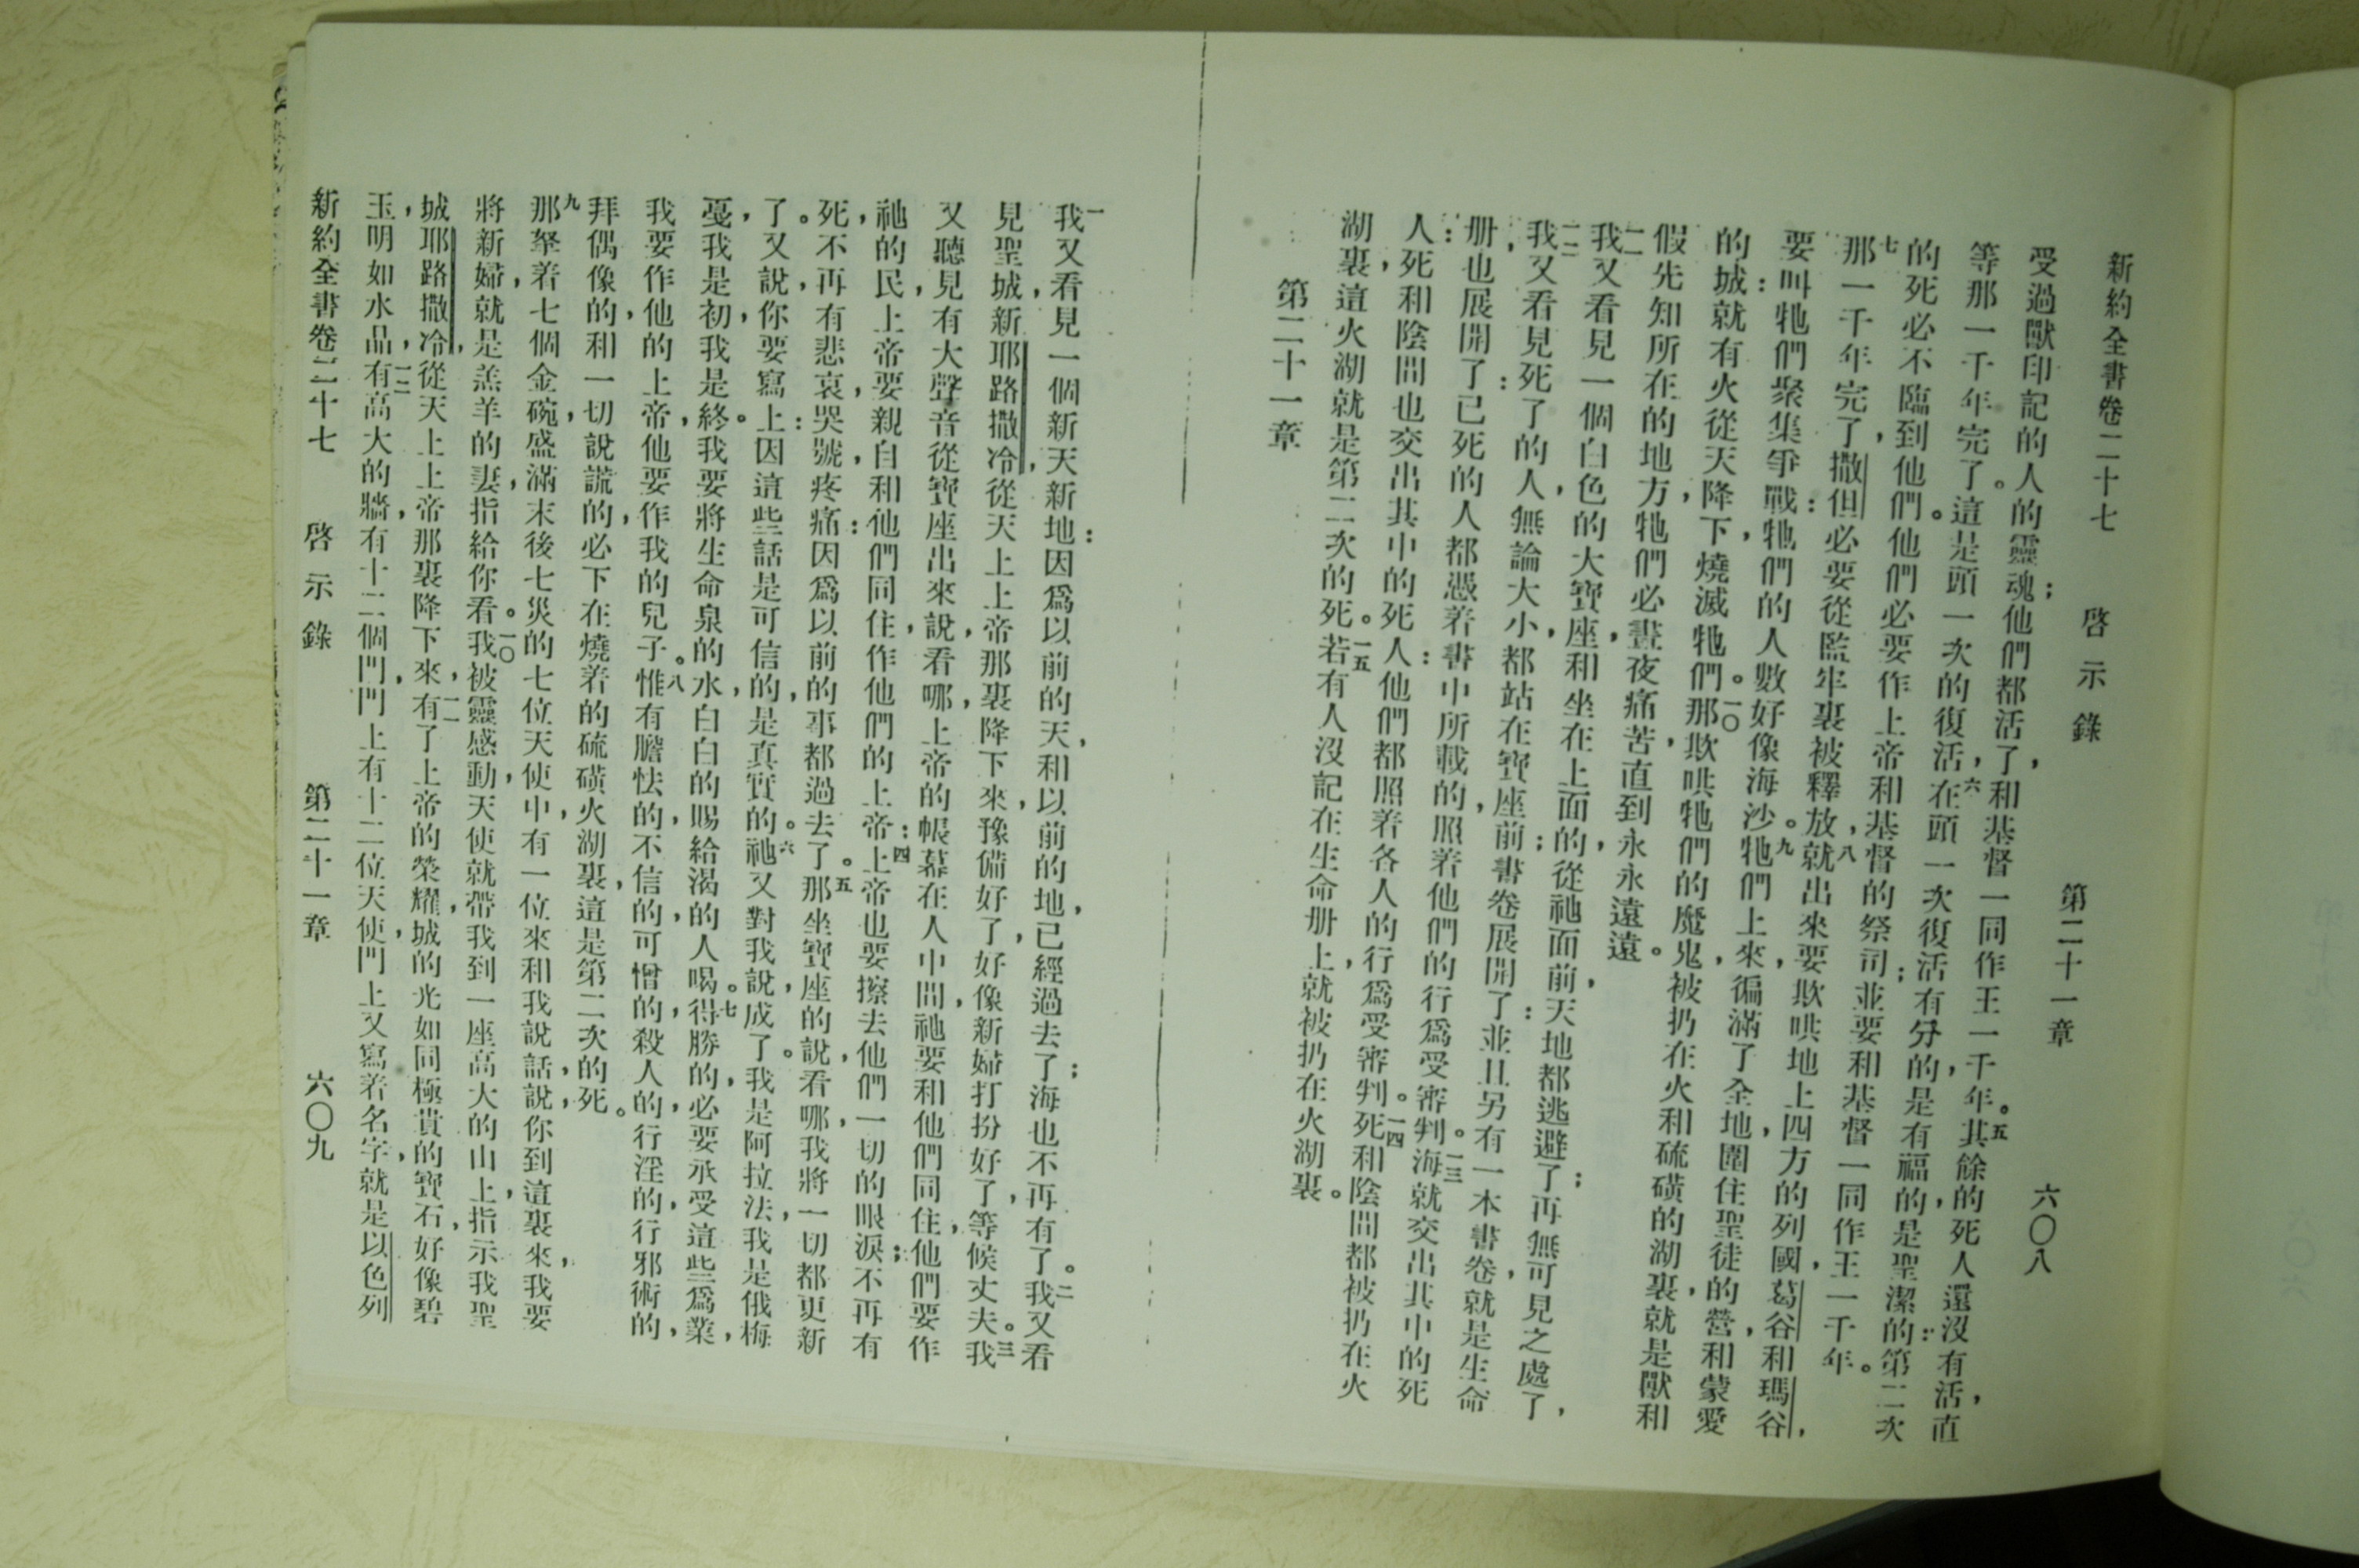 新約全書卷二十七 啓示錄 第二十一章 六〇八
受過獸印記的人的靈魂；他們都活了，和基督一同作王一千年。五其餘的死人，還沒有活，直
等那一千年完了。這是頭一次的復活，六在頭一次復活有分的，是有福的，是聖潔的：第二次
的死必不臨到他們。他們必要作上帝和基督的祭司；並要和基督一同作王一千年。
七那一千年完了，撒但必要從監牢裏被釋放，八就出來要欺哄地上四方的列國，葛谷和瑪谷，
要叫牠們聚集爭戰：牠們的人數好像海沙。九牠們上來，徧滿了全地，圍住聖徒的營，和蒙愛
的城：就有火從天降下，燒滅牠們。一〇那欺哄牠們的魔鬼，被扔在火和硫磺的湖裏，就是獸和
假先知所在的地方，牠們必晝夜痛苦，直到永永遠遠。
一一我又看見一個白色的大寶座，和坐在上面的，從祂面前，天地都逃避了；再無可見之處了，
一二我又看見死了的人，無論大小，都站在寶座前；書卷展開了：並且另有一本書卷，就是生命
册，也展開了：已死的人都憑着書中所載的，照着他們的行爲受審判。一三海就交出其中的死
人：死和陰間也交出其中的死人：他們都照着各人的行爲受審判。一四死和陰間都被扔在火
湖裏，這火湖就是第二次的死。一五若有人沒記在生命册上，就被扔在火湖裏。
第二十一章
一我又看見一個新天新地：因爲以前的天，和以前的地，已經過去了；海也不再有了。二我又看
見聖城，新耶路撒冷，從天上上帝那裏降下來，豫備好了，好像新婦打扮好了，等候丈夫。三我
又聽見有大聲音從寶座出來，說，看哪，上帝的帳幕在人中間，祂要和他們同住，他們要作
祂的民，上帝要親自和他們同住，作他們的上帝：四上帝也要擦去他們一切的眼淚；不再有
死，不再有悲哀，哭號，疼痛：因爲以前的事都過去了。五那坐寶座的說，看哪，我將一切都更新
了。又說，你要寫上：因這些話是可信的，是真實的。六祂又對我說，成了。我是阿拉法，我是俄梅
戞，我是初，我是終。我要將生命泉的水，白白的賜給渴的人喝。七得勝的，必要承受這些爲業，
我要作他的上帝，他要作我的兒子。八惟有膽怯的，不信的，可憎的，殺人的，行淫的，行邪術的，
拜偶像的，和一切說謊的，必下在燒着的硫磺火湖裏，這是第二次的死。
九那拏着七個金碗，盛滿末後七災的七位天使中，有一位來和我說話，說，你到這裏來，我要
將新婦，就是羔羊的妻，指給你看。一〇我被靈感動，天使就帶我到一座高大的山上，指示我聖
城耶路撒冷，從天上上帝那裏降下來，一一有了上帝的榮耀，城的光如同極貴的寶石，好像碧
玉，明如水晶，一二有高大的牆，有十二個門，門上有十二位天使，門上又寫着名字，就是以色列
新約全書卷二十七 啓示錄 第二十一章 六〇九